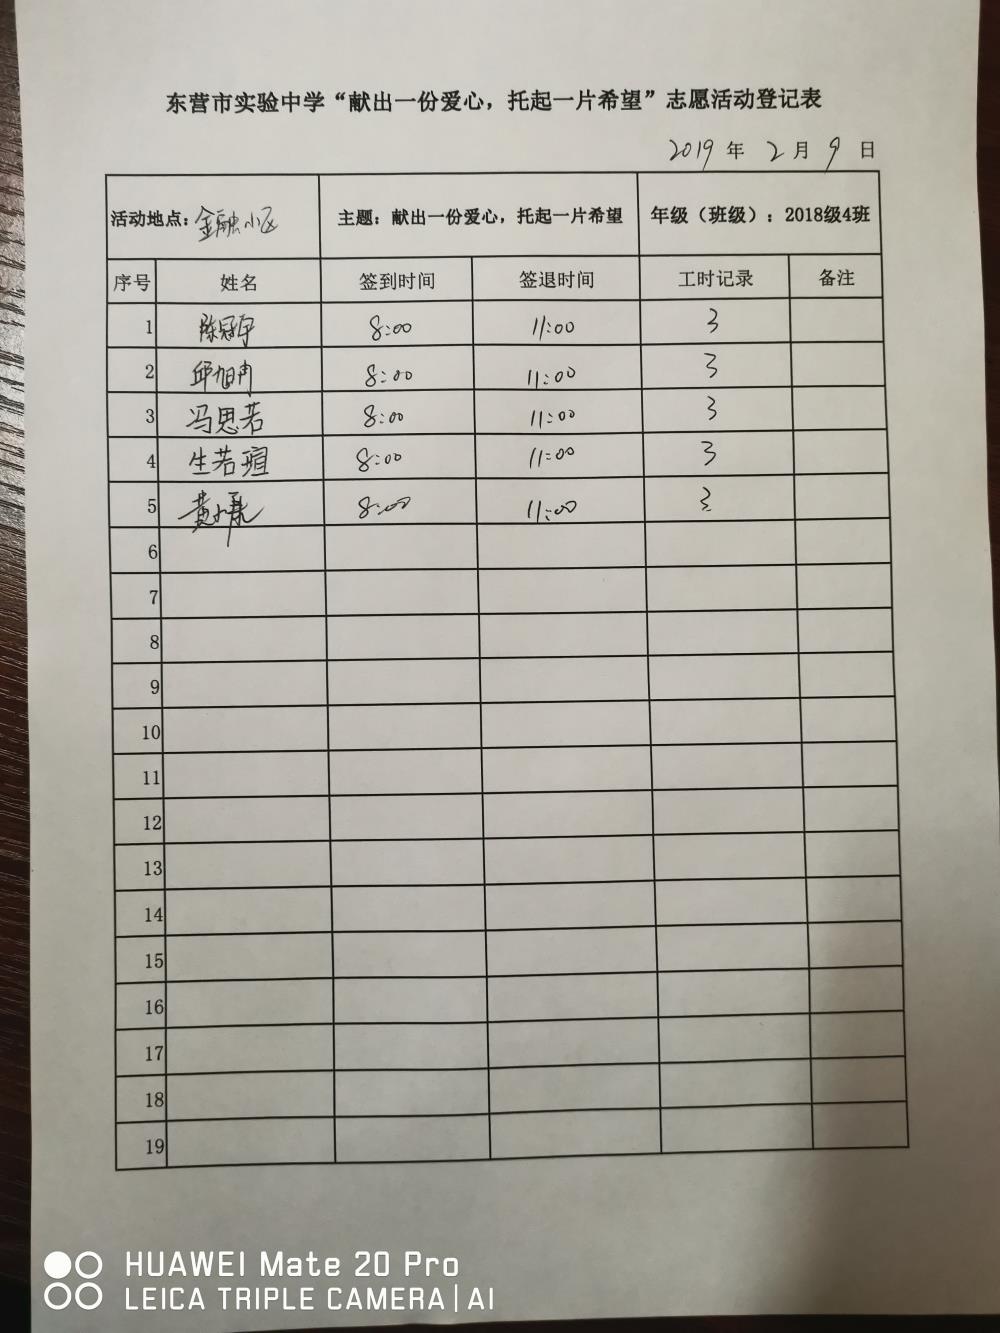 东营市实验中学“献出一份爱心，托起一片希望”志愿活动登记表
2019 年 2 月 9 日
活动地点：金融小区 主题：献出一份爱心，托起一片希望 年级（班级）：2018级4班
序号 姓名 签到时间 签退时间 工时记录 备注
1 陈冠宇 8:00 11:00 3
2 邱旭冉 8:00 11:00 3
3 冯思若 8:00 11:00 3
4 生若瑄 8:00 11:00 3
5 黄 8:00 11:00 3
6
7
8
9
10
11
12
13
14
15
16
17
18
19
HUAWEI Mate 20 Pro
LEICA TRIPLE CAMERA | AI